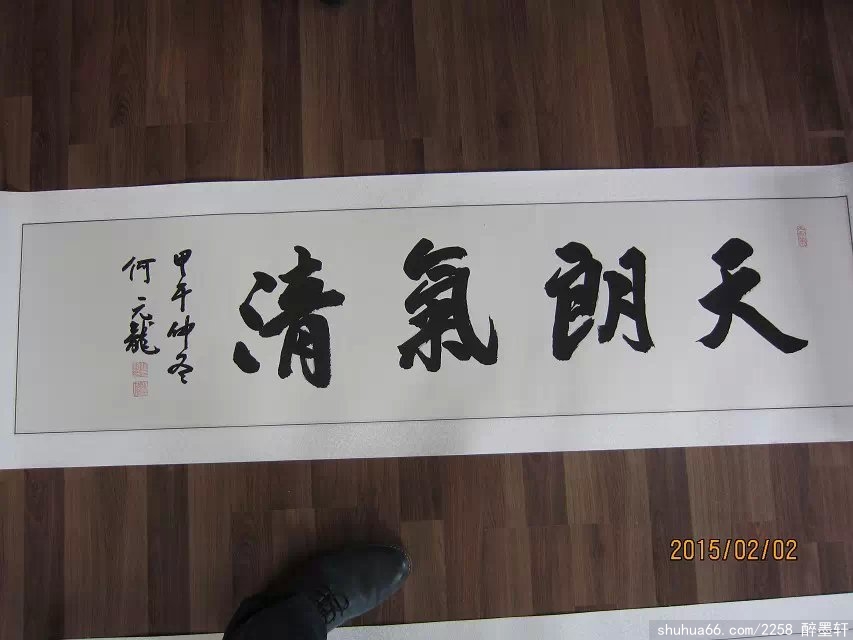 天朗氣清
甲午仲冬
何元龍
2015/02/02
shuhua66.com/2258 醉墨轩